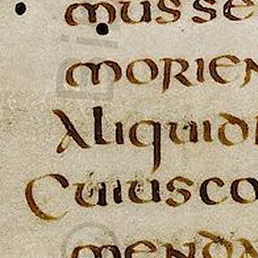 musse
morien
Aliquid
Cuiusco
menda